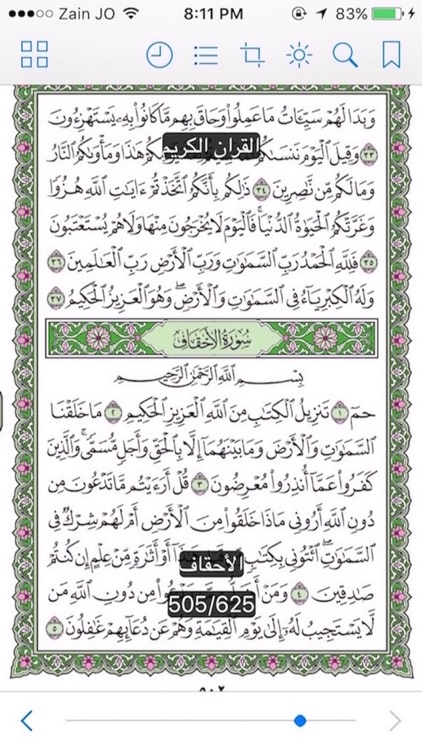 Zain JO 8:11 PM 83%
وَبَدَا لَهُمْ سَيِّـَٔاتُ مَا عَمِلُوا۟ وَحَاقَ بِهِم مَّا كَانُوا۟ بِهِۦ يَسْتَهْزِءُونَ
القران الكريم
٣٣ وَقِيلَ ٱلْيَوْمَ نَنسَىٰكُمْ هَٰذَا وَمَأْوَىٰكُمُ ٱلنَّارُ
وَمَا لَكُم مِّن نَّٰصِرِينَ ٣٤ ذَٰلِكُم بِأَنَّكُمُ ٱتَّخَذْتُمْ ءَايَٰتِ ٱللَّهِ هُزُوًا
وَغَرَّتْكُمُ ٱلْحَيَوٰةُ ٱلدُّنْيَا ۚ فَٱلْيَوْمَ لَا يُخْرَجُونَ مِنْهَا وَلَا هُمْ يُسْتَعْتَبُونَ
٣٥ فَلِلَّهِ ٱلْحَمْدُ رَبِّ ٱلسَّمَٰوَٰتِ وَرَبِّ ٱلْأَرْضِ رَبِّ ٱلْعَٰلَمِينَ ٣٦
وَلَهُ ٱلْكِبْرِيَآءُ فِى ٱلسَّمَٰوَٰتِ وَٱلْأَرْضِ ۖ وَهُوَ ٱلْعَزِيزُ ٱلْحَكِيمُ ٣٧
سُورَةُ الأَحْقَافِ
بِسْمِ ٱللَّهِ ٱلرَّحْمَٰنِ ٱلرَّحِيمِ
حمٓ ١ تَنزِيلُ ٱلْكِتَٰبِ مِنَ ٱللَّهِ ٱلْعَزِيزِ ٱلْحَكِيمِ ٢ مَا خَلَقْنَا
ٱلسَّمَٰوَٰتِ وَٱلْأَرْضَ وَمَا بَيْنَهُمَآ إِلَّا بِٱلْحَقِّ وَأَجَلٍ مُّسَمًّى ۚ وَٱلَّذِينَ
كَفَرُوا۟ عَمَّآ أُنذِرُوا۟ مُعْرِضُونَ ٣ قُلْ أَرَءَيْتُم مَّا تَدْعُونَ مِن
دُونِ ٱللَّهِ أَرُونِى مَاذَا خَلَقُوا۟ مِنَ ٱلْأَرْضِ أَمْ لَهُمْ شِرْكٌ فِى
ٱلسَّمَٰوَٰتِ ۖ ٱئْتُونِى بِكِتَٰبٍ أَوْ أَثَٰرَةٍ مِّنْ عِلْمٍ إِن كُنتُمْ
الأحقاف
صَٰدِقِينَ ٤ وَمَنْ مِن دُونِ ٱللَّهِ مَن
505/625
لَّا يَسْتَجِيبُ لَهُۥٓ إِلَىٰ يَوْمِ ٱلْقِيَٰمَةِ وَهُمْ عَن دُعَآئِهِمْ غَٰفِلُونَ ٥